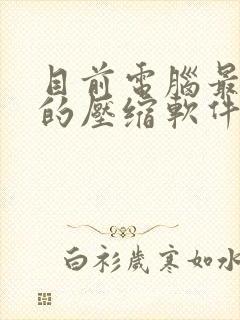 目前電腦最
的壓缩軟件
白衫歲寒如水